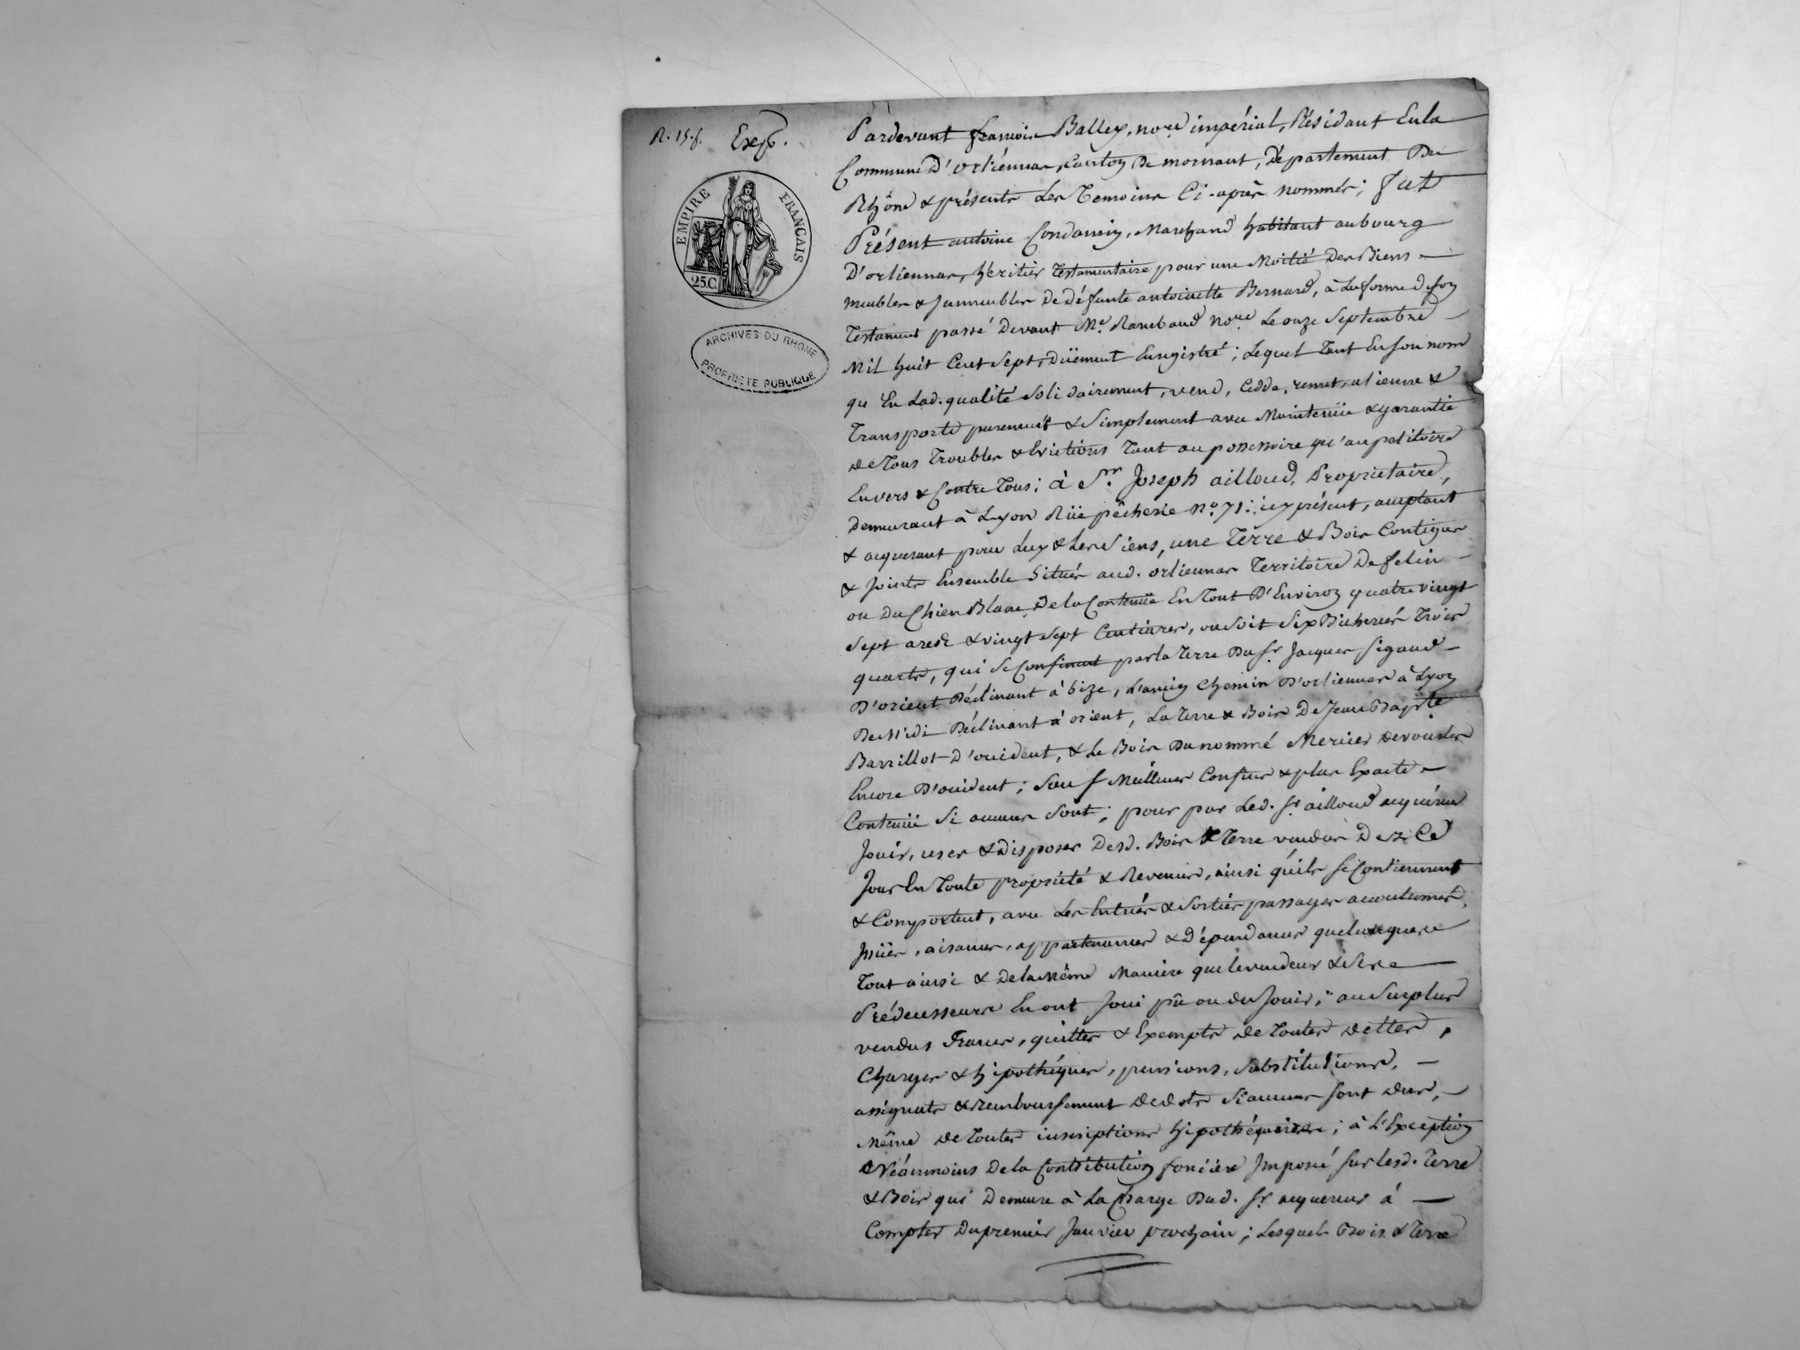 R. 15. f. Exp.
EMPIRE FRANÇAIS
25.C
ARCHIVES DU RHONE
PROPRIETE PUBLIQUE
Pardevant françois Balley, no.re impérial, Résidant En la
Commune D'orliénnas, Canton De mornant, Département Du
Rhône & présents Les Temoins Ci-après nommés; fut
Présent antoine Condamin, Marchand habitant au bourg
D'orliennas, héritier Testamentaire pour une Moitié Des Biens
meubles & Immeubles De Défunte antoinette Bernard, à La forme De son
Testament passé Devant M.e Rambaud no.re Le onze Septembre
Mil huit Cent Sept, Düement Enregistré; Lequel Tant En son nom
qu'En Lad. qualité Solidairement, vend, Cedde, remet, aliene &
Transporte purement & Simplement avec Maintenüe & garantie
De Tous Troubles & Evictions Tant au possessoire qu'au petitoire
Envers & Contre Tous; à S.r Joseph ailloud, Proprietaire,
Demeurant à Lyon Rüe pêcherie n.o 71: icy présent, acceptant
& acquerant pour Luy & Les Siens, une Terre & Bois Contigus
& Joints Ensemble Situés aud. orliennas Territoire De felin
ou Du Chien Blanc, De la Contenüe En Tout D'Environ quatre vingt
Sept ares & vingt Sept Centiares, ou Soit Six Bicherées Trois
quarts, qui Se Confinent par la Terre Du S.r Jacques Sigaud
D'orient Déclinant à bize, L'ancien Chemin D'orliennas à Lyon
De Midi Déclinant à orient, La Terre & Bois De Jean Bapt.te
Barrillot D'occident, & Le Bois Du nommé Mercier
Encore D'occident; Sauf Meilleurs Confins & plus Exacte
Contenüe Si aucuns Sont; pour par Led. S.r ailloud acquéreur
Jouir, user & Disposer Desd. Bois & Terre vendus Dez Ce
Jour En Toute propriété & Revenus, ainsi qu'ils Se Contiennent
& Comportent, avec Les Entrées & Sorties passages accoutumés,
Issües, aisances, appartenances & Dépendances quelconques
Tout ainsi & De la Même Manière que le vendeur & Ses
Prédecesseurs En ont Joui pû ou du Jouir; au Surplus
vendus Francs, quittes & Exempts De Toutes Dettes,
Charges & hipothéques, pensions, Substitutions,
assignats & Remboursement De Dots Si aucuns Sont Dus,
Même De Toutes inscriptions hipothéquaires; à L'Exception
Néanmoins De la Contribution foncière Imposé Sur Lesd. Terre
& Bois qui Demeure à La Charge Dud. S.r acquereur à
Compter Du premier Janvier prochain; Lesquels Bois & Terre